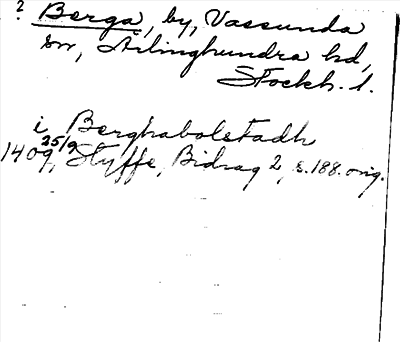 ? Berga, by, Vassunda
sn, Ärlinghundra hd,
Stockh. l.
i Berghabolstadh
1409 25/9, Styffe, Bidrag 2, s. 188. orig.